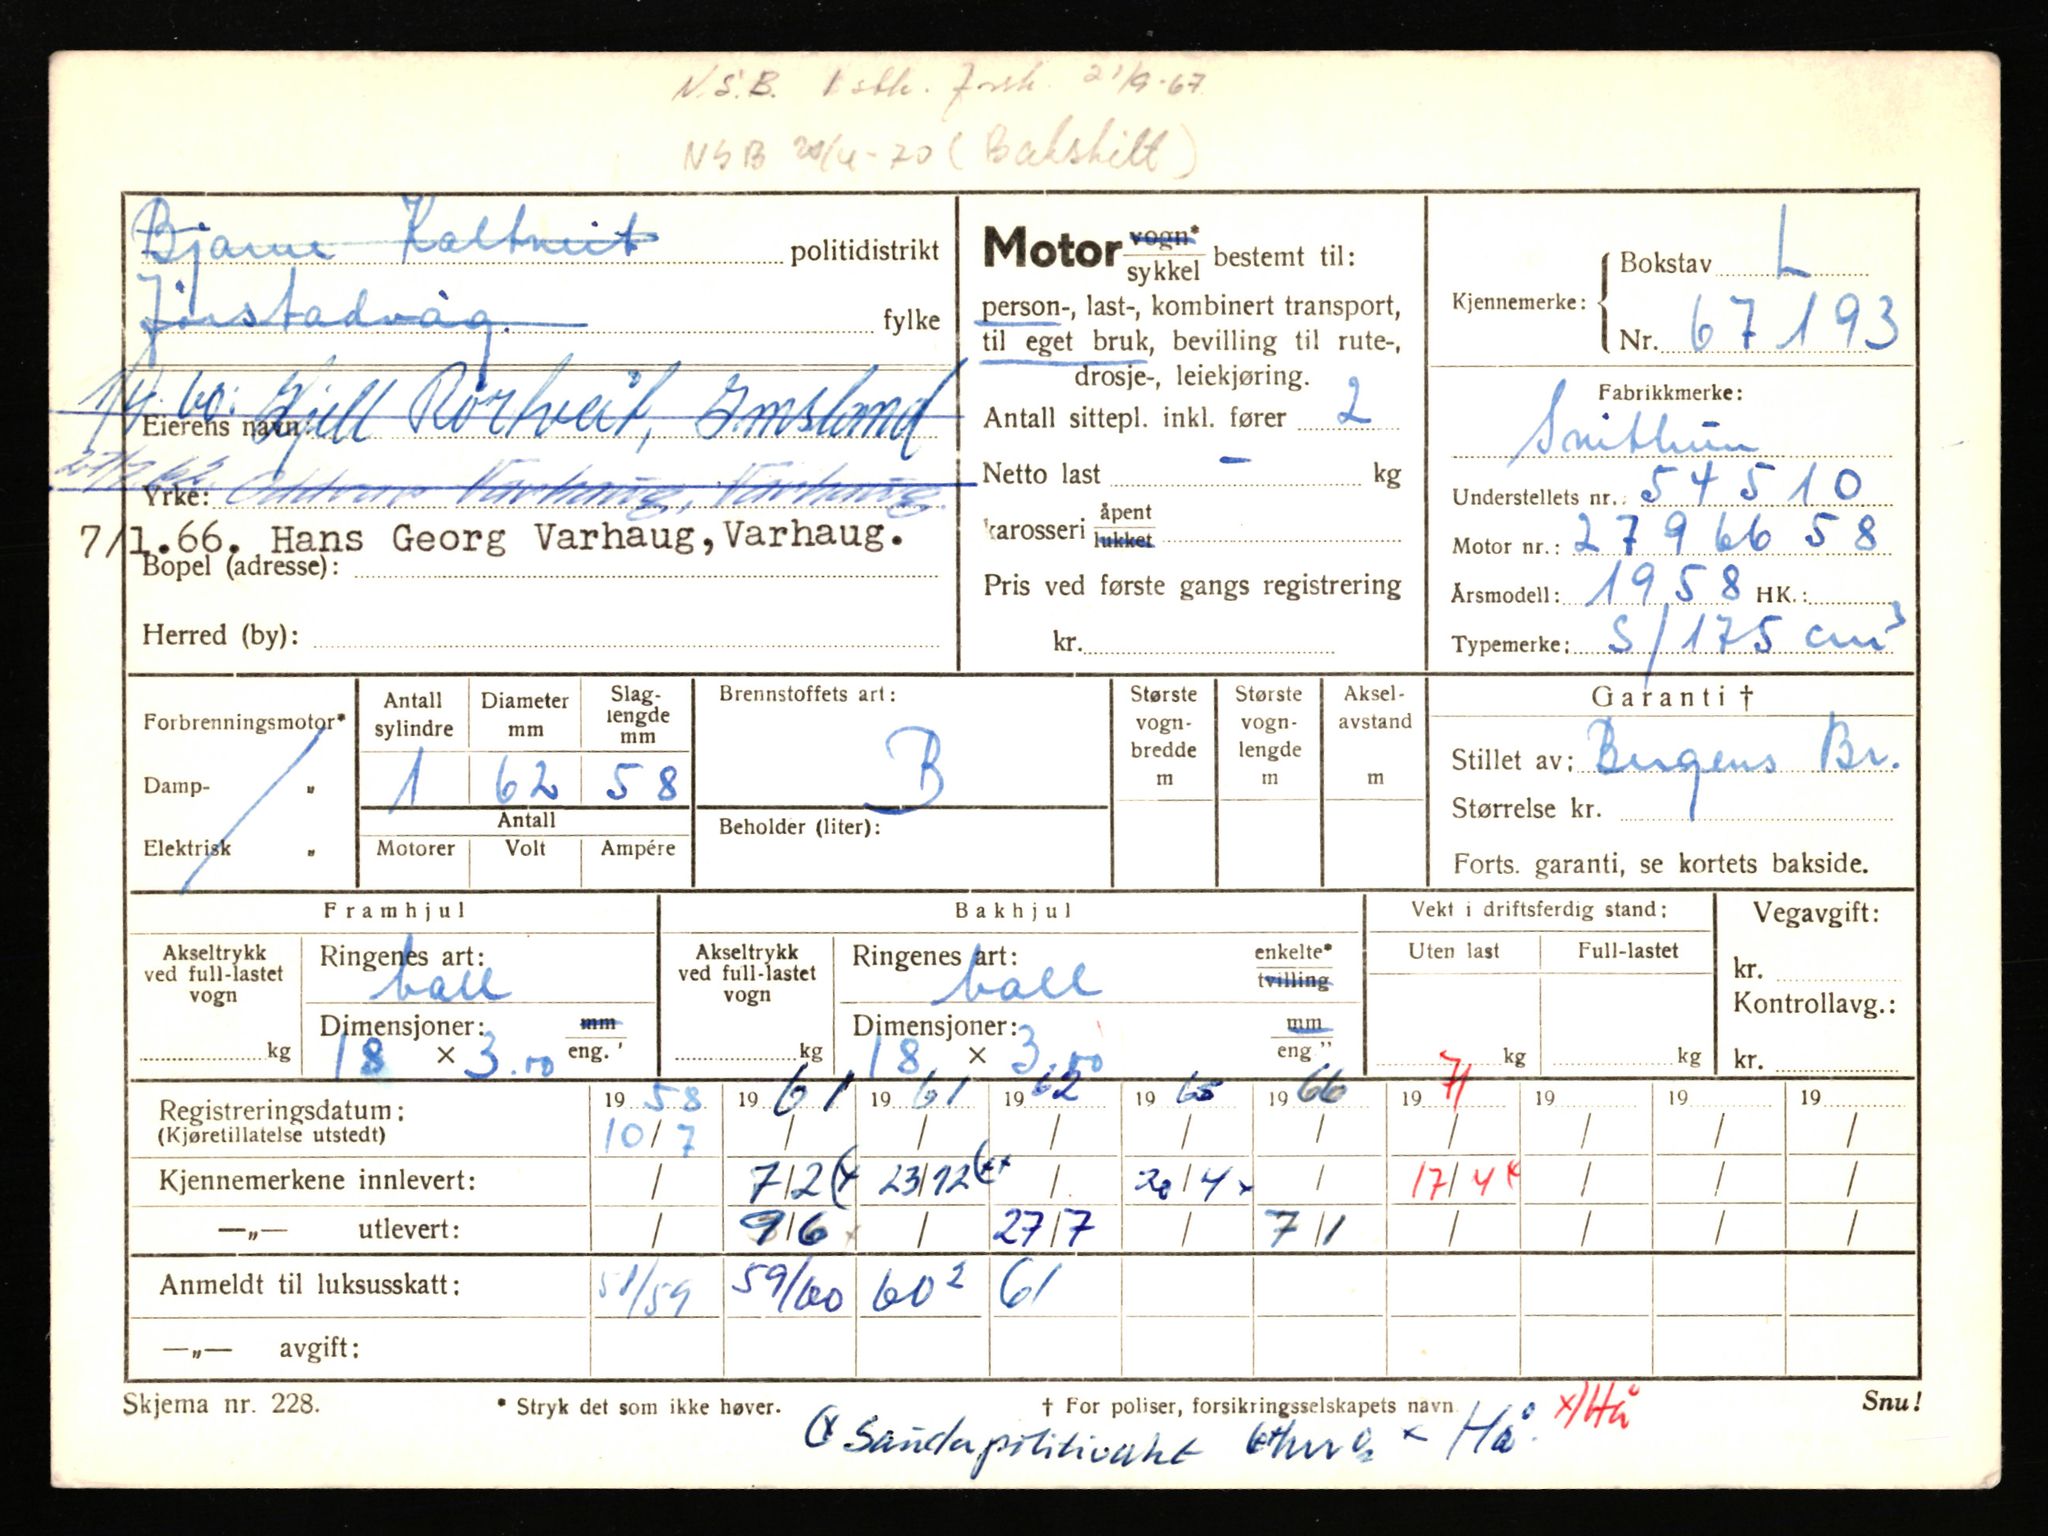 N.S.B. 1 stk. forsk. 21/9-67
NSB 20/4-70 (Bakskilt)
Bjarne Kaltveit politidistrikt
Jørstadvåg. fylke
1/4. 60: Kjell Rørtveit, Imsland
Eierens navn:
27/7 62. Varhaug, Varhaug.
Yrke:
7/1.66. Hans Georg Varhaug, Varhaug.
Bopel (adresse):
Herred (by):
Motor vogn* sykkel bestemt til:
person-, last-, kombinert transport,
til eget bruk, bevilling til rute-,
drosje-, leiekjøring.
Antall sittepl. inkl. fører 2
Netto last - kg
karosseri åpent lukket
Pris ved første gangs registrering
kr.
Kjennemerke: { Bokstav L
Nr. 67193
Fabrikkmerke:
Svithun
Understellets nr.: 54510
Motor nr.: 2796658
Årsmodell: 1958 HK.:
Typemerke: S/175 cm³
Forbrenningsmotor*
Damp- "
Elektrisk "
Antall sylindre Diameter mm Slag-lengde mm
1 62 58
Antall
Motorer Volt Ampére
Brennstoffets art:
B
Beholder (liter):
Største vogn-bredde m
Største vogn-lengde m
Aksel-avstand m
Garanti †
Stillet av: Bergens Br.
Størrelse kr.
Forts. garanti, se kortets bakside.
Framhjul
Akseltrykk ved full-lastet vogn
kg
Ringenes art:
ball
Dimensjoner: mm eng. "
18 × 3.00
Bakhjul
Akseltrykk ved full-lastet vogn
kg
Ringenes art: enkelte* tvilling
ball
Dimensjoner: mm eng "
18 × 3.00
Vekt i driftsferdig stand:
Uten last Full-lastet
kg kg
Vegavgift:
kr.
Kontrollavg.:
kr.
Registreringsdatum: 19 58 19 61 19 61 19 62 19 65 19 66 19 71 19 19 19
(Kjøretillatelse utstedt) 10/7 / / / / / / / / /
Kjennemerkene innlevert: / 7/2 (x 23/12 (xx / 20/4 x / 17/4 x / / /
—„— utlevert: / 9/6 / 27/7 / 7/1 / / / /
Anmeldt til luksusskatt: 58/59 59/60 60² 61
—„— avgift:
Skjema nr. 228. * Stryk det som ikke høver. † For poliser, forsikringsselskapets navn. Snu!
(x Sauda politivakt x Hå. x/Hå